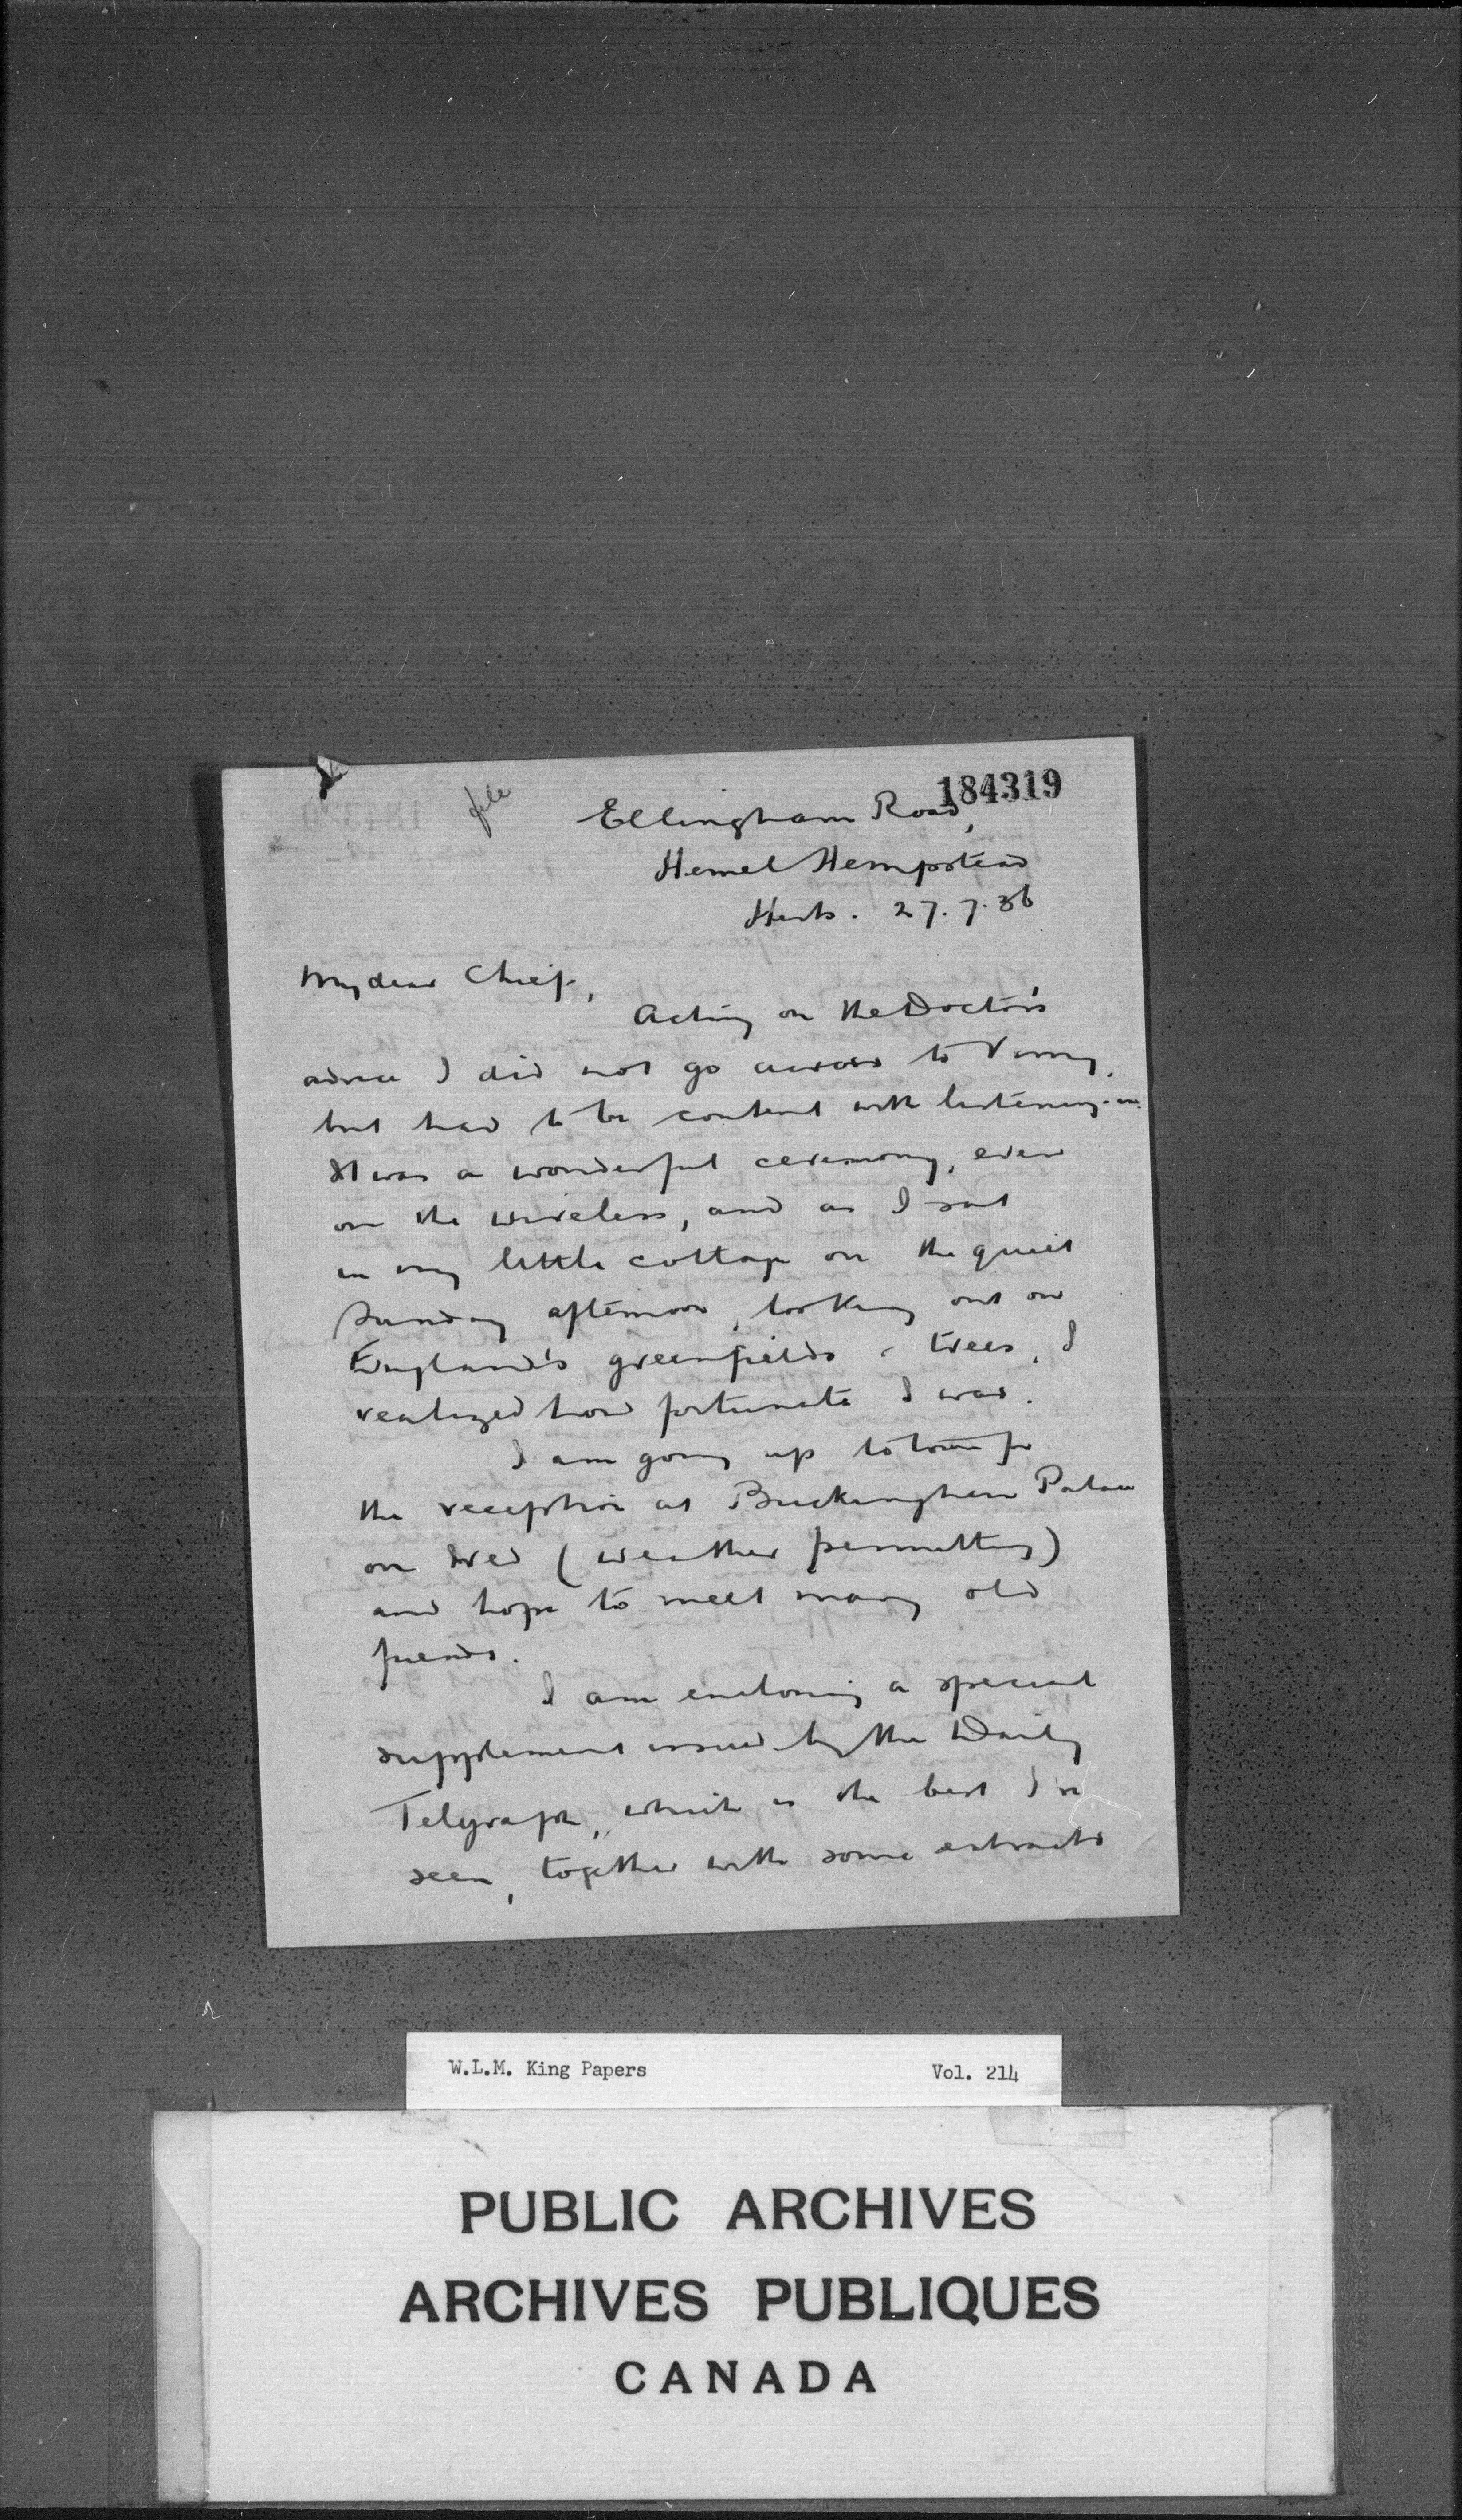 file
184319
Ellingham Road,
Hemel Hempstead
Herts. 27.7.36
My dear Chief,
Acting on the Doctor's
advice I did not go across to Vimy,
but had to be content with listening-in.
It was a wonderful ceremony, even
on the wireless, and as I sat
in my little cottage on the quiet
Sunday afternoon, looking out on
England's green fields & trees, I
realized how fortunate I was.
I am going up to town for
the reception at Buckingham Palace
on Wed (weather permitting)
and hope to meet many old
friends.
I am enclosing a special
supplement issued by the Daily
Telegraph, which is the best I've
seen, together with some extracts
W.L.M. King Papers Vol. 214
PUBLIC ARCHIVES
ARCHIVES PUBLIQUES
CANADA